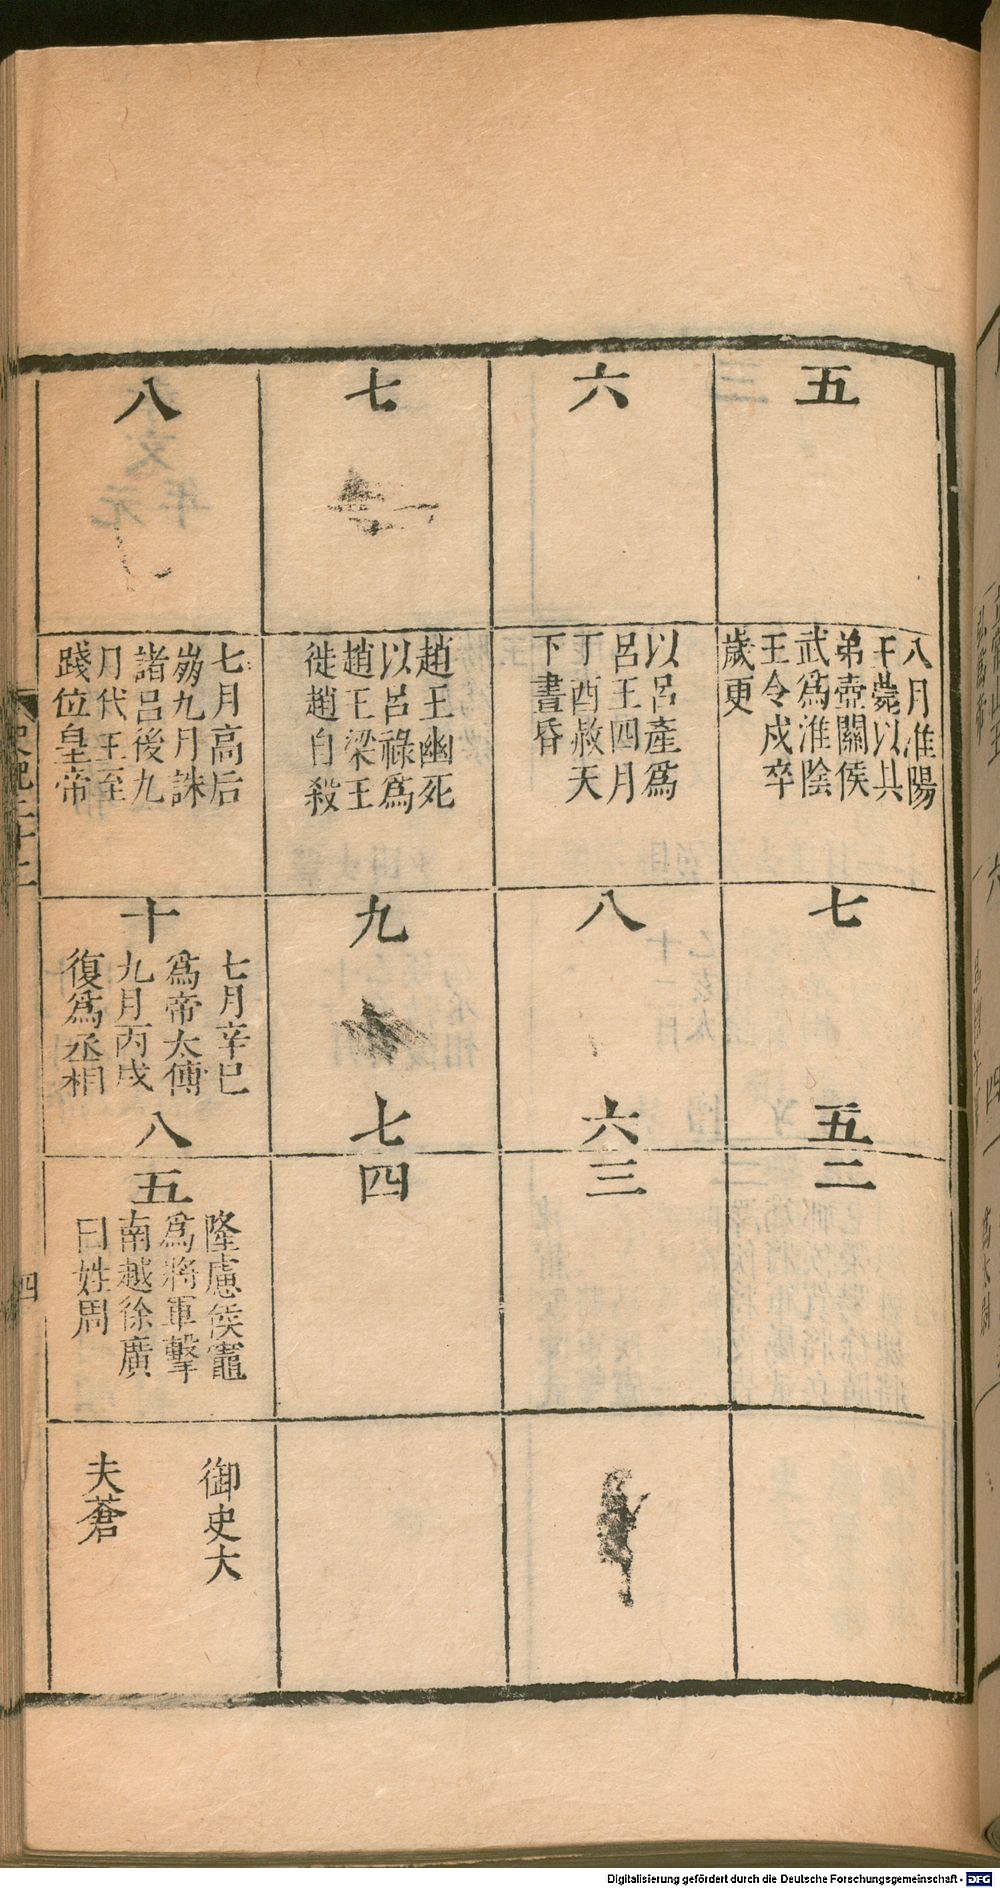 五
八月淮陽
王薨以其
弟壺關侯
武爲淮陰
王令戍卒
歲更
七
五
二
六
以呂產爲
呂王四月
丁酉赦天
下晝昏
八
六
三
七
趙王幽死
以呂祿爲
趙王梁王
徙趙自殺
九
七
四
八
七月高后
崩九月誅
諸呂後九
月代王至
踐位皇帝
十
七月辛巳
爲帝太傅
九月丙戌
復爲丞相
八
五
隆慮侯竈
爲將軍擊
南越徐廣
曰姓周
御史大
夫蒼
史記二十二
四
Digitalisierung gefördert durch die Deutsche Forschungsgemeinschaft - DFG